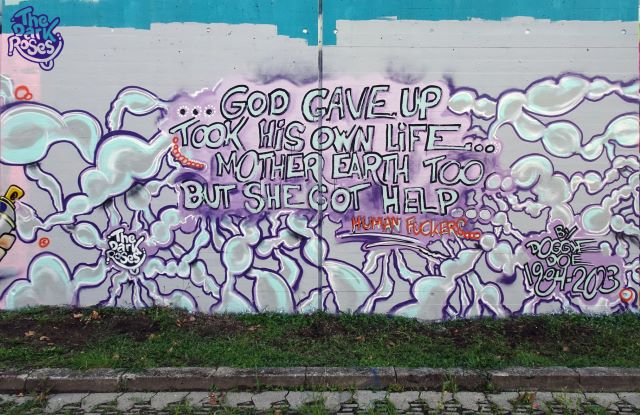 The
Dark
Roses
...GOD GAVE UP
TOOK HiS OWN LiFE...
MOTHER EARTH TOO
BUT SHE GOT HELP
HUMAN FUCKERS...
The
Dark
Roses
BY
DOGGiE
DOE
1984-2023